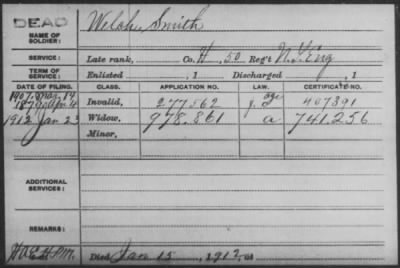 DEAD
NAME OF SOLDIER: Welch, Smith
SERVICE: Late rank, Co. H, 50 Reg't N.Y. Eng
TERM OF SERVICE: Enlisted , 1 Discharged , 1
DATE OF FILING. CLASS. APPLICATION NO. LAW. CERTIFICATE NO.
1907. Mar. 19 age
Apr 4 Invalid, 277.562 g. 407391
1912 Jan 23 Widow, 978.861 a 741.256
Minor,
ADDITIONAL SERVICES:
REMARKS:
Died Jan 15, 1912, at